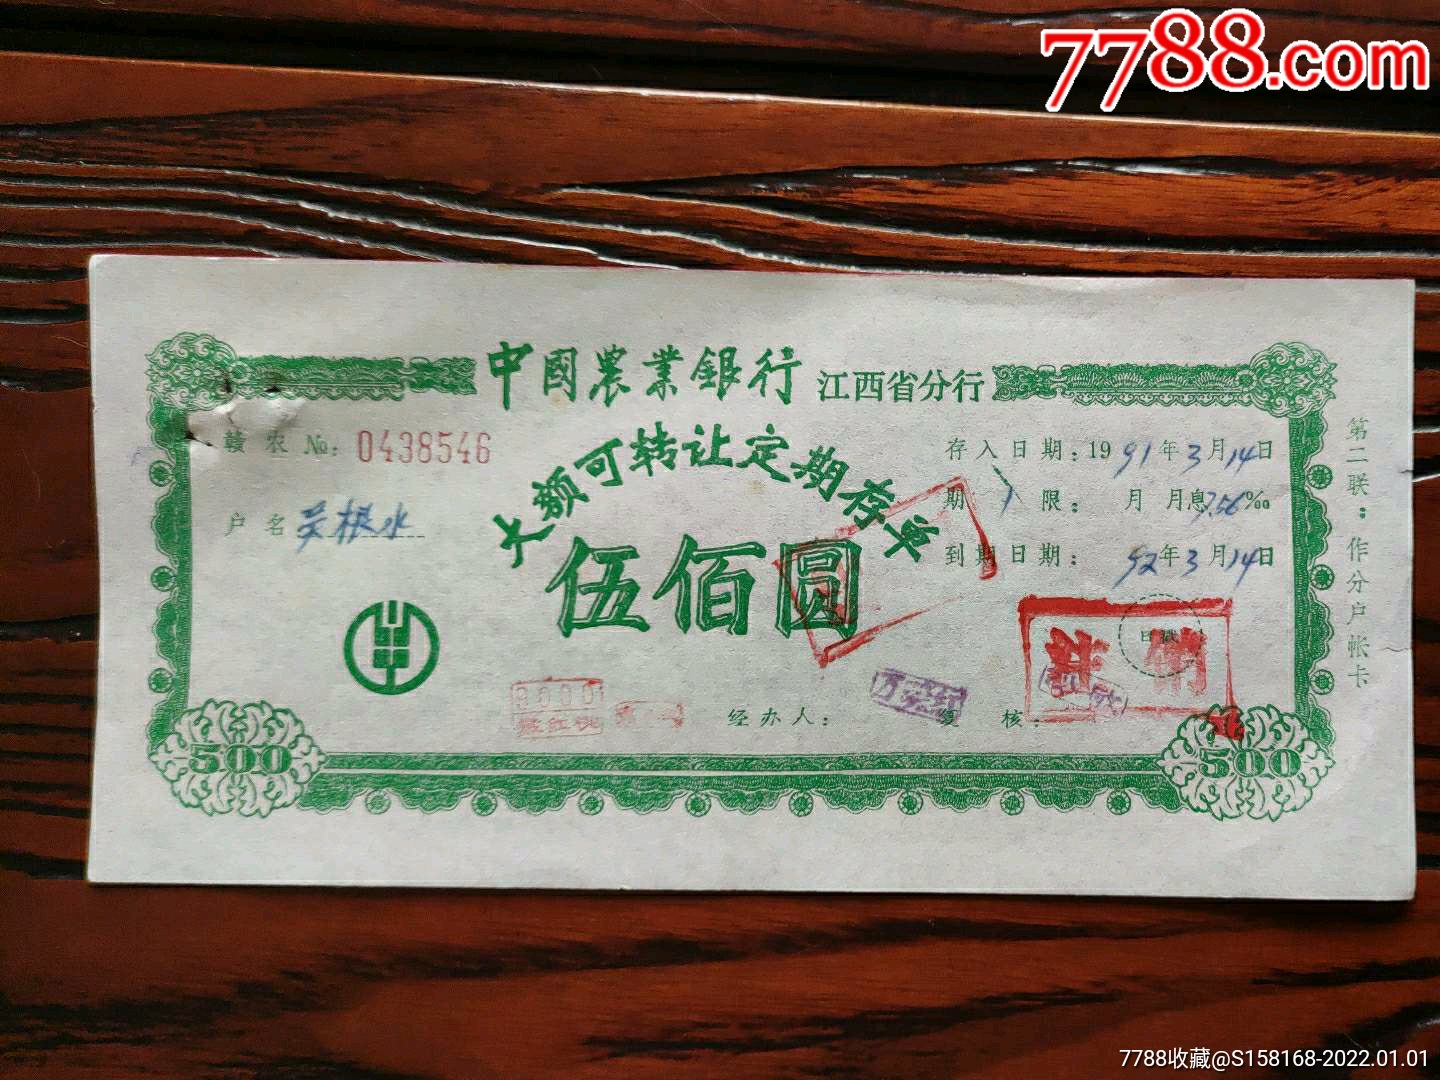 7788.com
中國農業銀行 江西省分行
大额可转让定期存单
赣农 №: 0438546
户名 关根水
伍佰圆
存入日期: 1991年3月14日
期限: 1 月 月息7.56‰
到期日期: 92年3月14日
第二联:作分户帐卡
注销
经办人:
复核:
500
500
7788收藏@S158168-2022.01.01